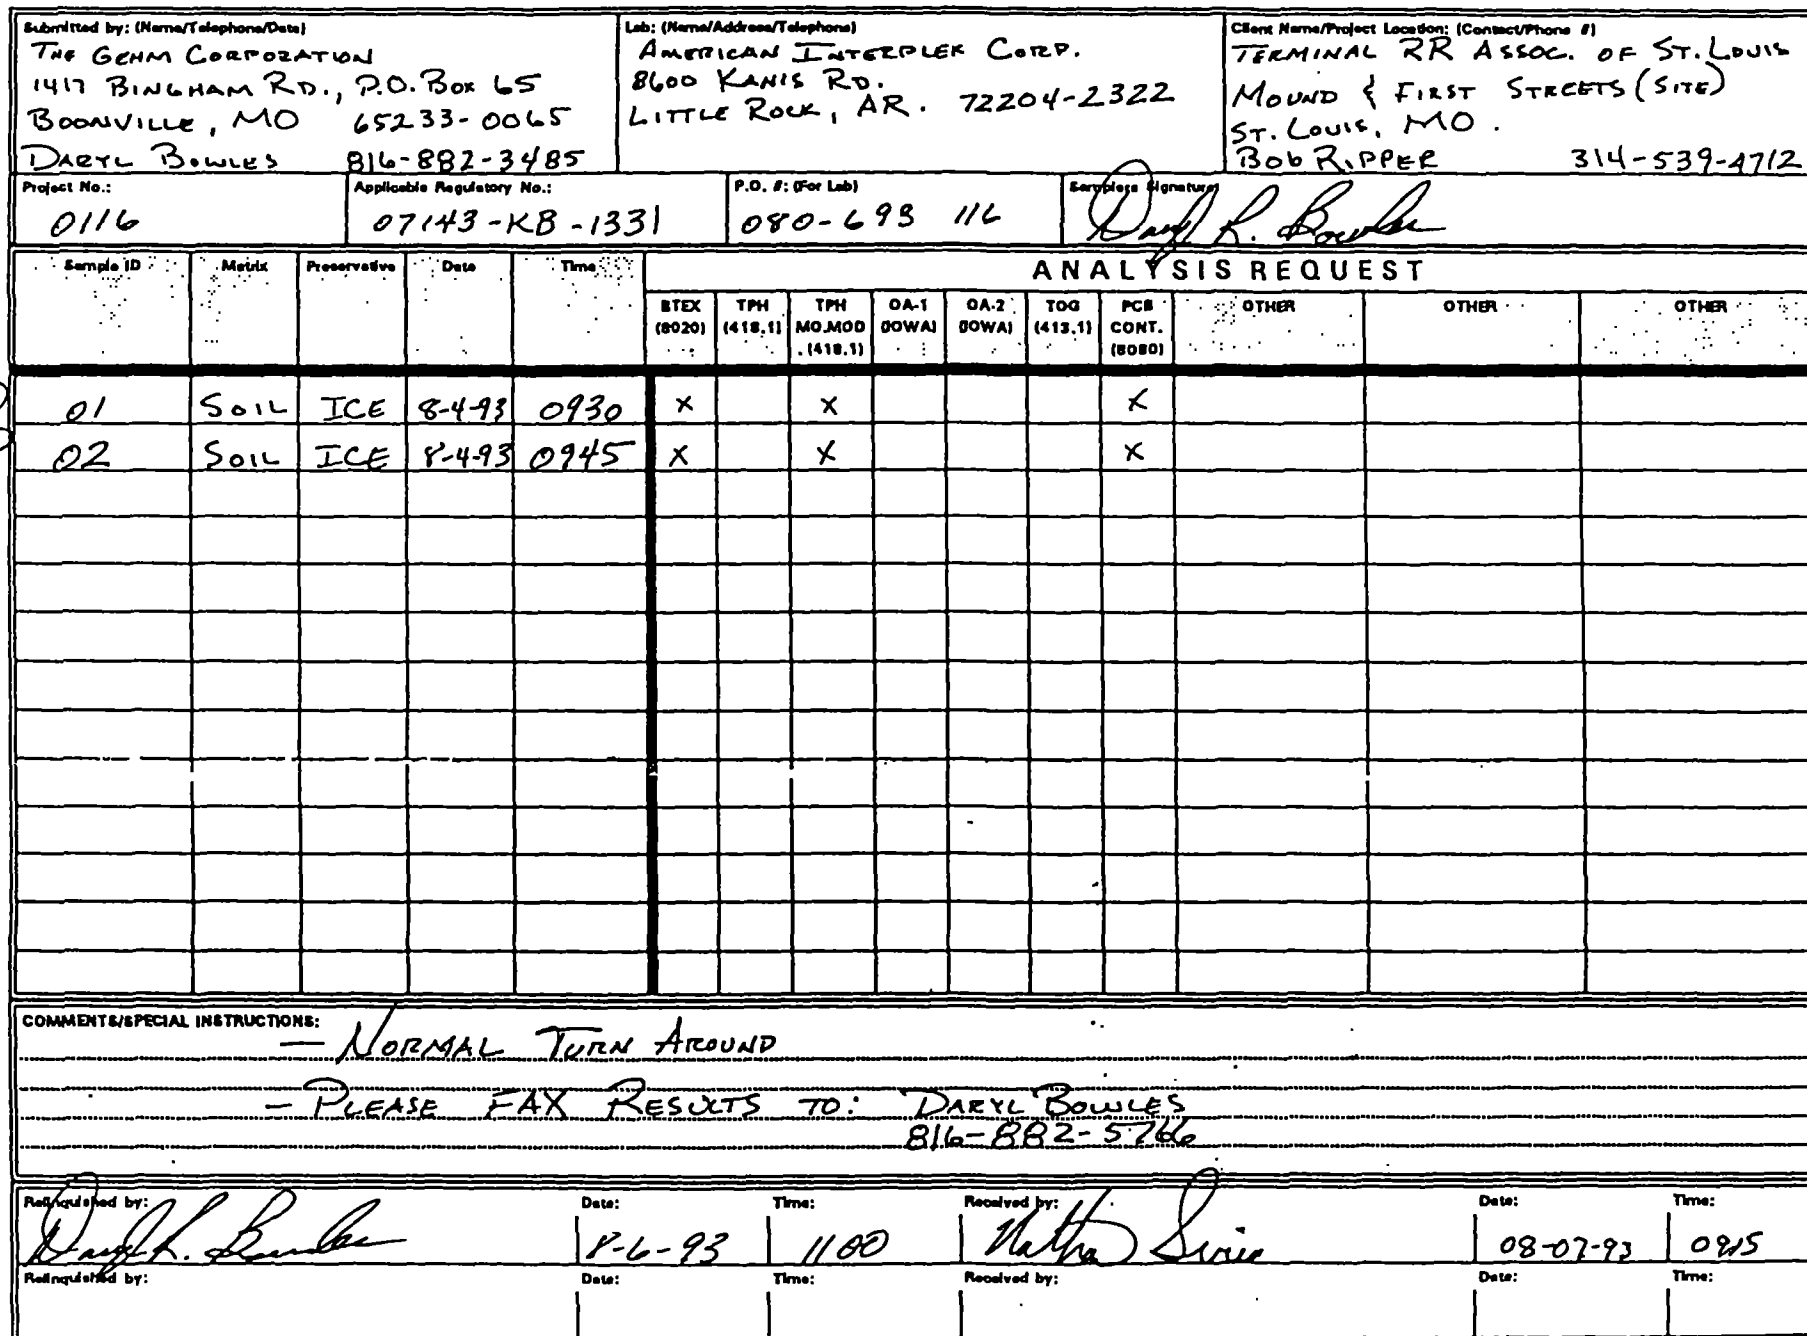 Submitted by: (Name/Telephone/Date)
THE GEHM CORPORATION
1417 BINGHAM RD., P.O. BOX 65
BOONVILLE, MO 65233-0065
DARYL BOWLES 816-882-3485
Lab: (Name/Address/Telephone)
AMERICAN INTERPLEX CORP.
8600 KANIS RD.
LITTLE ROCK, AR. 72204-2322
Client Name/Project Location: (Contact/Phone #)
TERMINAL RR ASSOC. OF ST. LOUIS
MOUND & FIRST STREETS (SITE)
ST. LOUIS, MO.
BOB RIPPER 314-539-4712
Project No.:
0116
Applicable Regulatory No.:
07143-KB-1331
P.O. #: (For Lab)
080-693 116
Samplers Signature
Daryl R. Bowles
ANALYSIS REQUEST
Sample ID Matrix Preservative Date Time BTEX (8020) TPH (418.1) TPH MO.MOD. (418.1) OA-1 (IOWA) OA-2 (IOWA) TOG (413.1) PCB CONT. (8080) OTHER OTHER OTHER
01 SOIL ICE 8-4-93 0930 X X X
02 SOIL ICE 8-4-93 0945 X X X
COMMENTS/SPECIAL INSTRUCTIONS:
— NORMAL TURN AROUND
— PLEASE FAX RESULTS TO: DARYL BOWLES
816-882-5766
Relinquished by: Date: Time: Received by: Date: Time:
Daryl R. Bowles 8-6-93 1100 08-07-93 0915
Relinquished by: Date: Time: Received by: Date: Time: